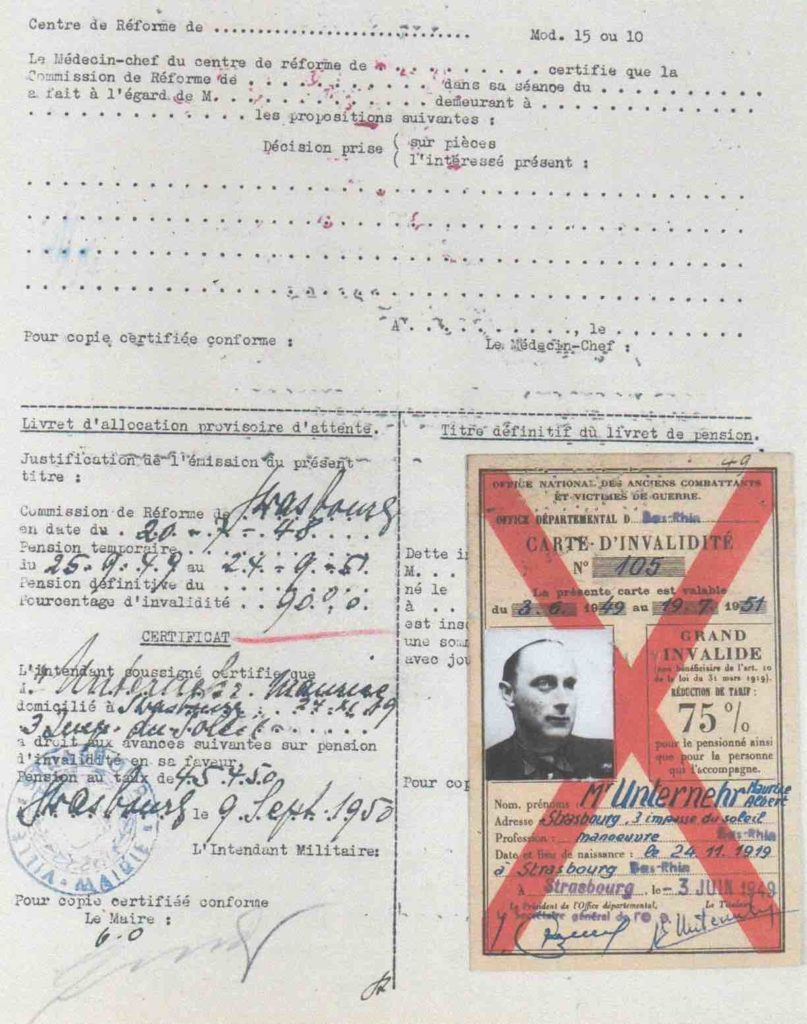 Centre de Réforme de ..............................
Mod. 15 ou 10
Le Médecin-chef du centre de réforme de ........... certifie que la
Commission de Réforme de ............ dans sa séance du ............
a fait à l'égard de M. ............ demeurant à ............
............ les propositions suivantes :
Décision prise ( sur pièces
( l'intéressé présent :
A ............, le ........
Pour copie certifiée conforme :
Le Médecin-Chef :
Livret d'allocation provisoire d'attente.-
Justification de l'émission du présent
titre :
Commission de Réforme de Strasbourg
en date du . 20 - 7 - 48
Pension temporaire
du 25-9-49 au 24-9-51
Pension définitive du
Pourcentage d'invalidité . . 90%
CERTIFICAT
L'Intendant soussigné certifie que
Unternehr Maurice
domicilié à Strasbourg
3 Imp. du Soleil
a droit aux avances suivantes sur pension
d'invalidité en sa faveur.
Pension au taux de 45.450
Strasbourg le 9 Sept. 1950
L'Intendant Militaire:
VILLE MAIRIE
Pour copie certifiée conforme
Le Maire :
Titre définitif du livret de pension.
Dette
M.
né le
à
est
une
avec
Pour
49
OFFICE NATIONAL DES ANCIENS COMBATTANTS
ET VICTIMES DE GUERRE.
OFFICE DÉPARTEMENTAL D Bas-Rhin
CARTE D'INVALIDITÉ
N° 105
La présente carte est valable
du 3.6.1949 au 19.7.1951
GRAND
INVALIDE
(non bénéficiaire de l'art. 10
de la loi du 31 mars 1919).
RÉDUCTION DE TARIF :
75 %
pour le pensionné ainsi
que pour la personne
qui l'accompagne.
Nom, prénoms Mr Unternehr Maurice Albert
Adresse Strasbourg, 3 impasse du soleil
Profession : manoeuvre Bas-Rhin
Date et lieu de naissance : le 24.11.1919
à Strasbourg Bas-Rhin
A Strasbourg, le - 3 JUIN 1949
Le Président de l'Office départemental, Le Titulaire
Secrétaire général de l'O